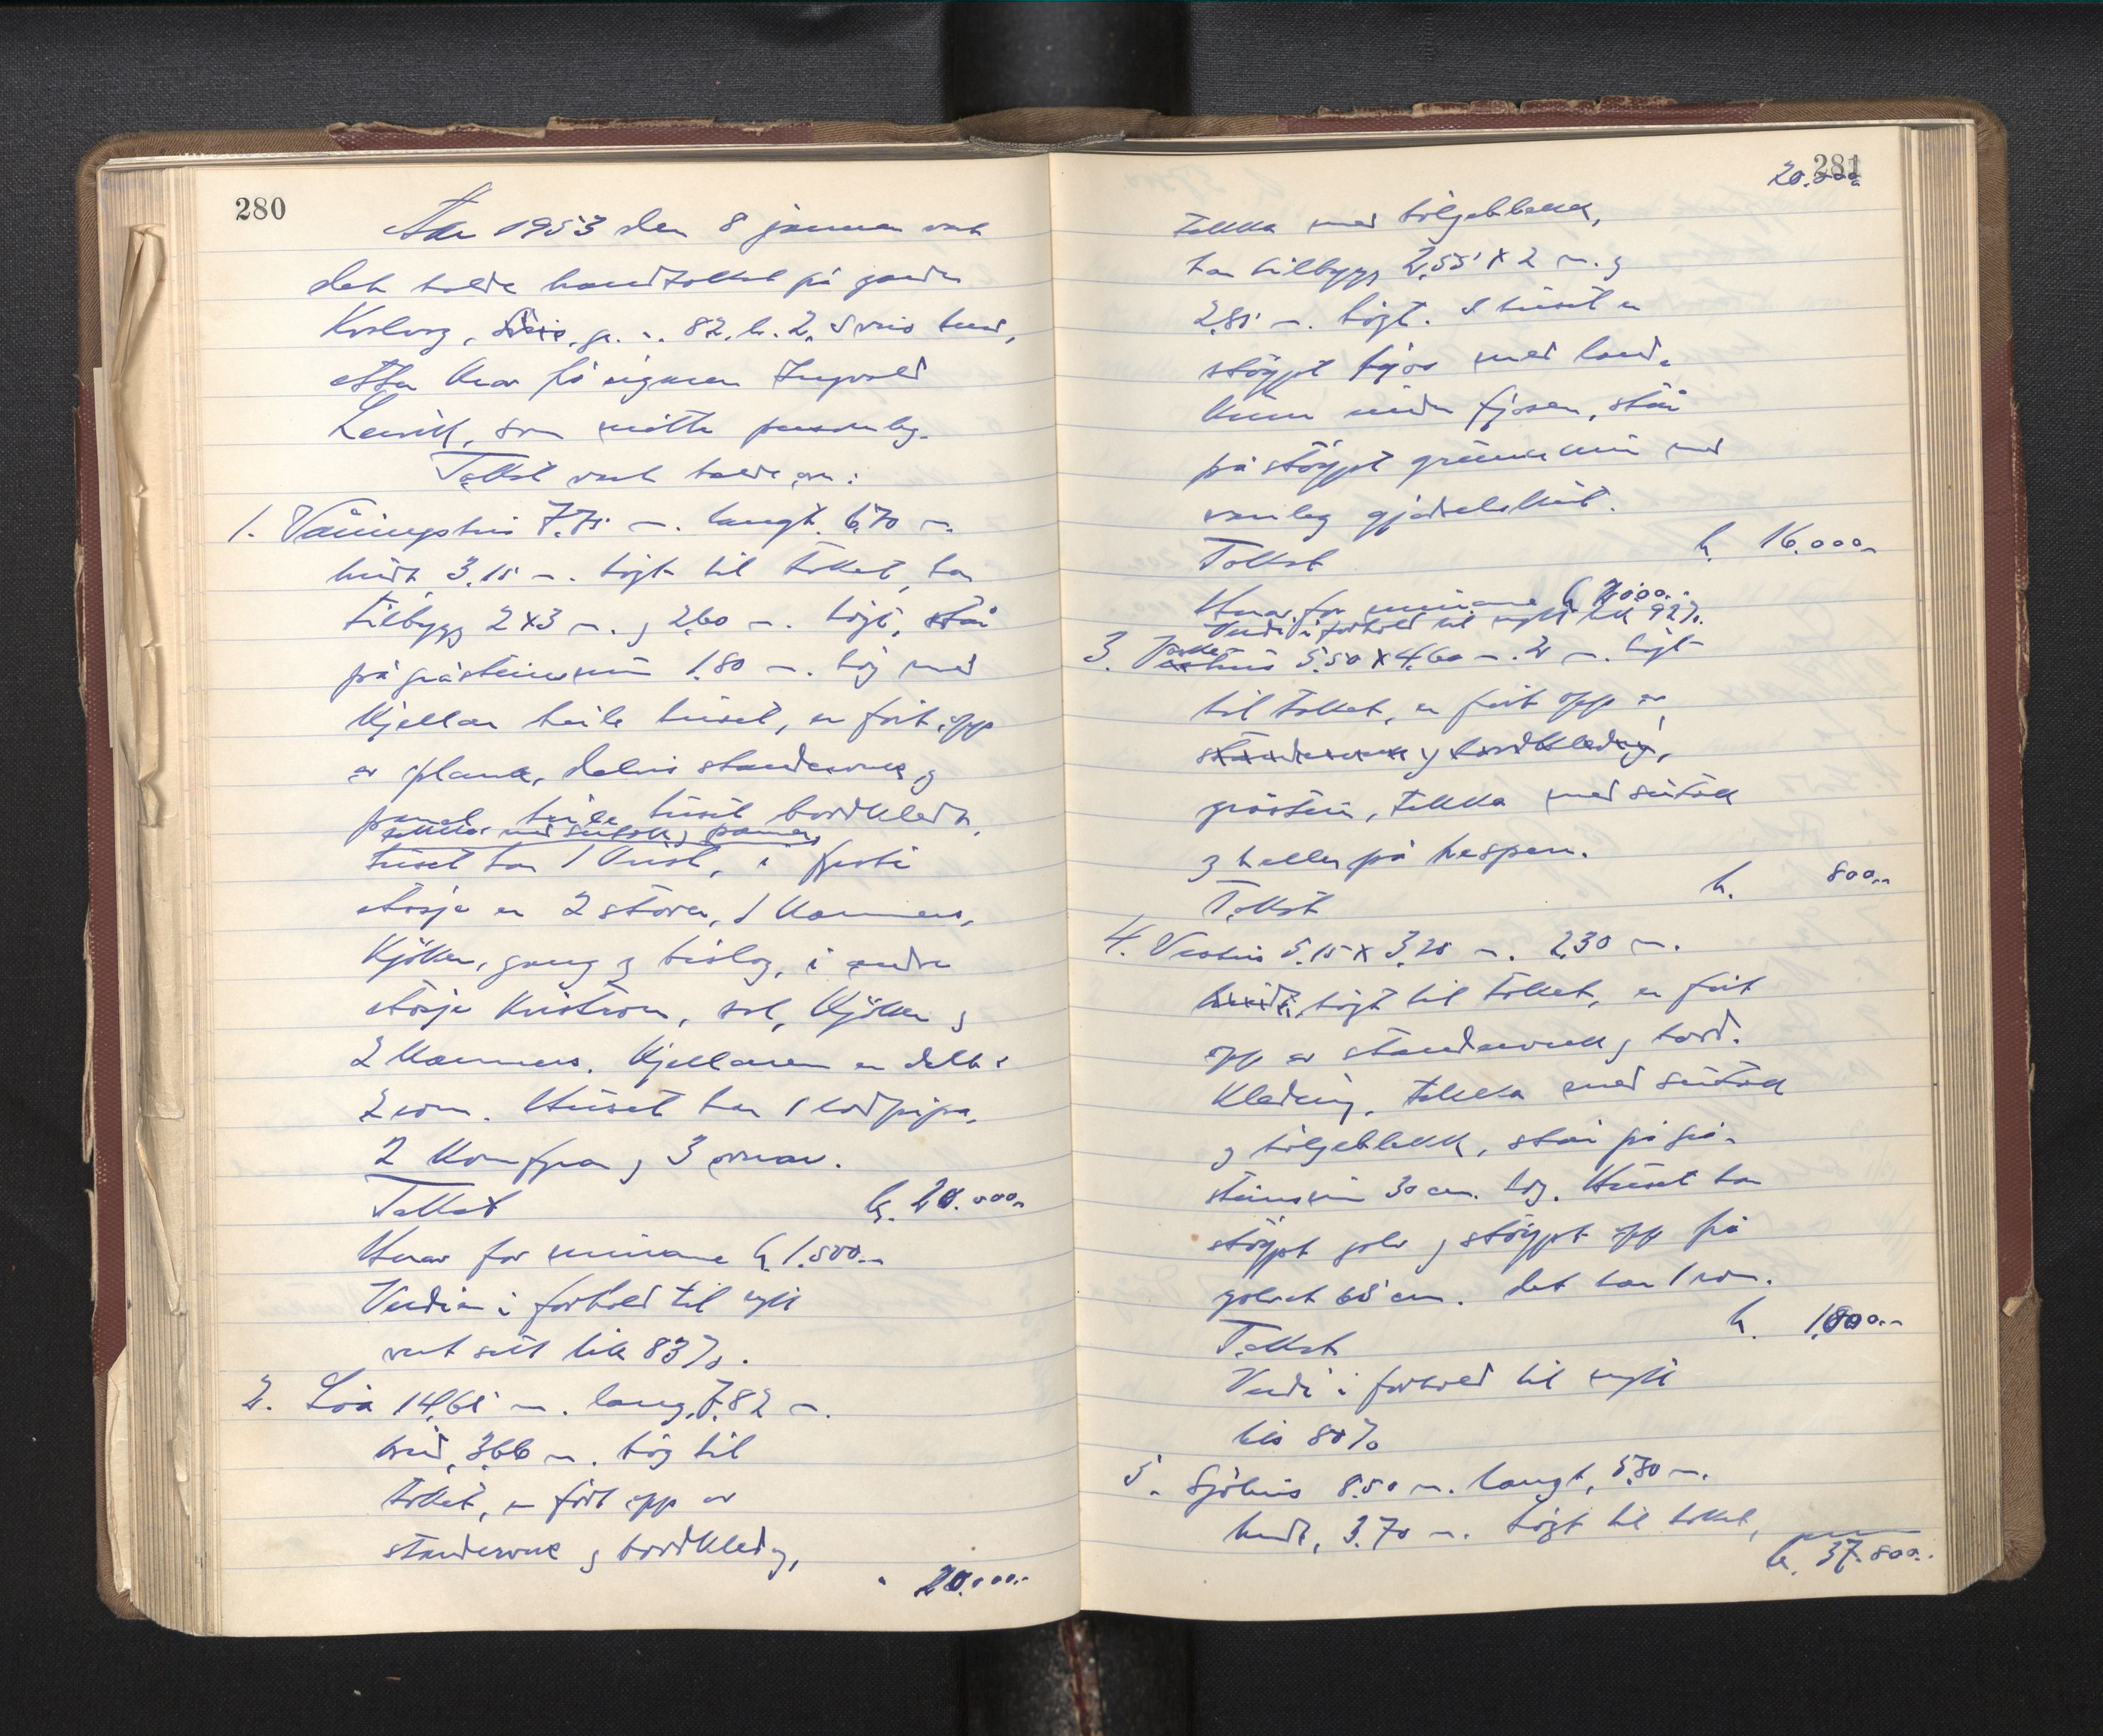 280
År 1953 den 8 januar vart
det halde brandtakst på garden
Kvalvåg, g. n. 82, b. 2,
etter krav frå eigaren Ingvald
som møtte personleg.
Takst vart halde over:
1. Våningshus 7.75 m. langt. 6.70 m.
breidt, 3.15 m. høgt til taket, har
tilbygg 2 x 3 m. og 2.60 m. høgt, står
på gråsteinsmur 1.80 m. høg med
kjellar heile huset, er ført opp
av plank, delvis standarverk og
panel, heile huset bordkledt,
tekka med sutak og panner,
huset har 1 kvist, i fyrste
etasje er 2 stover, 1 kammers,
kjøken, gang og bislag, i andre
etasje kvistrom, sal, kjøken og
2 kammers. Kjellaren er delt i
2 rom. Huset har 1 rødpipa,
2 komfyrar og 3 omnar.
Takst kr. 20.000.-
Herav for murane kr. 1.500.-
Verdien i forhold til nytt
vart sett lik 83%.
2. Løa 14,65 m. lang, 7.82 m.
breid, 3.66 m. høg til
taket, er ført opp av
standarverk og bordkledng,
20.000.-
281
20.000
tekka med bølgeblekk,
har tilbygg 2,55 x 2 m. og
2,85 m. høgt. I huset er
støypt fjøs med land-
kum under fjosen, står
på støypt grunnmur med
vanleg gjødselskut.
Takst kr. 16.000.-
Herav for murane kr. 7000.-
Verdi i forhold til nytt lik 92%.
3. 5.50 x 4.60 m. 2 m. høgt
til taket, er ført opp av
standarverk og bordkledng,
gråstein, tekka med sutak
og heller på hespen.
Takst kr. 800.-
4. Vedhus 5.15 x 3,25 m. 2,30 m.
breidt, høgt til taket, er ført
opp av standarverk og bord-
kledning, tekka med sutak
og bølgeblekk, står på grå-
steinsmur 30 cm. høg. Huset har
støypt golv og støypt opp frå
golvet 65 cm. det har 1 rom.
Takst kr. 1.000.-
Verdi i forhold til nytt
lik 80%
5. Sjøhus 8.50 m. langt, 5.80 m.
breidt, 3.70 m. høgt til taket,
kr. 37.800.-